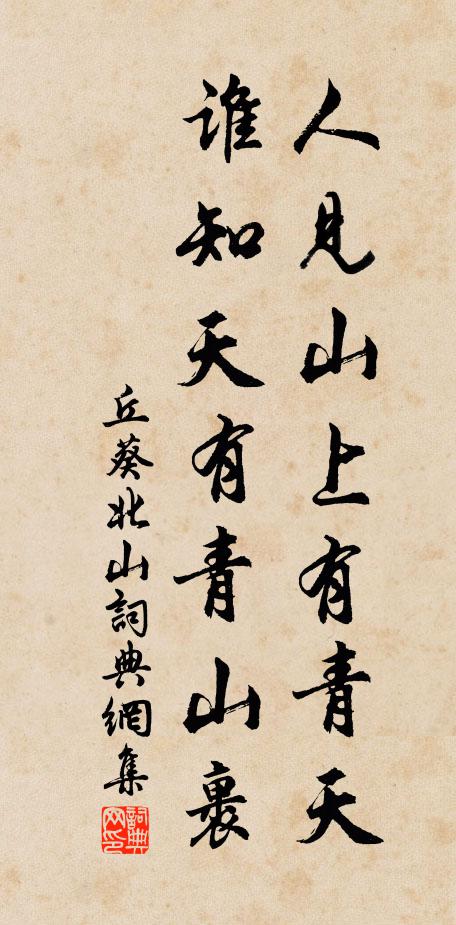 人見山上有青天
誰知天有青山裹
丘葵北山詞典網集
詞典网印